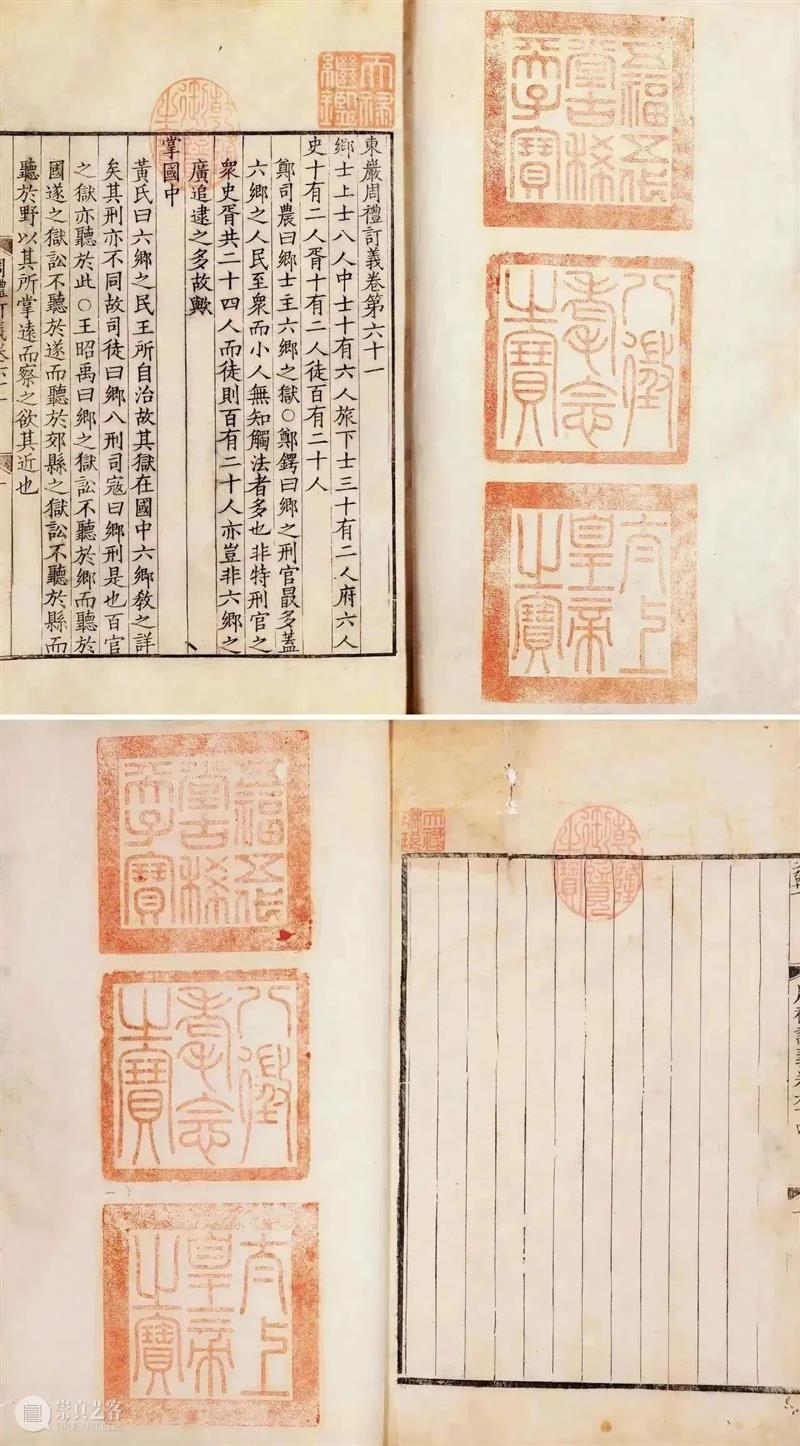 五福五代堂古稀天子寶
八徵耄念之寶
太上皇帝之寶
天祿繼鑑
乾隆御覽之寶
東巖周禮訂義卷第六十一
鄉士上士八人中士十有六人旅下士三十有二人府六人
史十有二人胥十有二人徒百有二十人
鄭司農曰鄉士主六鄉之獄○鄭鍔曰鄉之刑官最多蓋
六鄉之人民至衆而小人無知觸法者多也非特刑官之
衆史胥共二十四人而徒則百有二十人亦豈非六鄉之
廣追逮之多故歟
掌國中
黃氏曰六鄉之民王所自治故其獄在國中六鄉教之詳
矣其刑亦不同故司徒曰鄉八刑司寇曰鄉刑是也百官
之獄亦聽於此○王昭禹曰鄉之獄訟不聽於鄉而聽於
國遂之獄訟不聽於遂而聽於郊縣之獄訟不聽於縣而
聽於野以其所掌遠而察之欲其近也
乾隆御覽之寶
天祿琳琅
五福五代堂古稀天子寶
八徵耄念之寶
太上皇帝之寶
崇真艺客